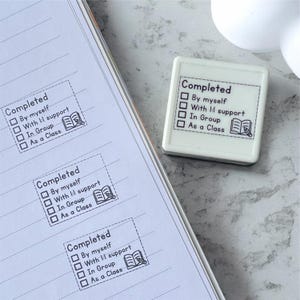 Completed
By myself
With lil support
In Group
As a Class
Completed
By myself
With lil support
In Group
As a Class
Completed
By myself
With lil support
In Group
As a Class
Completed
By myself
With lil support
In Group
As a Class